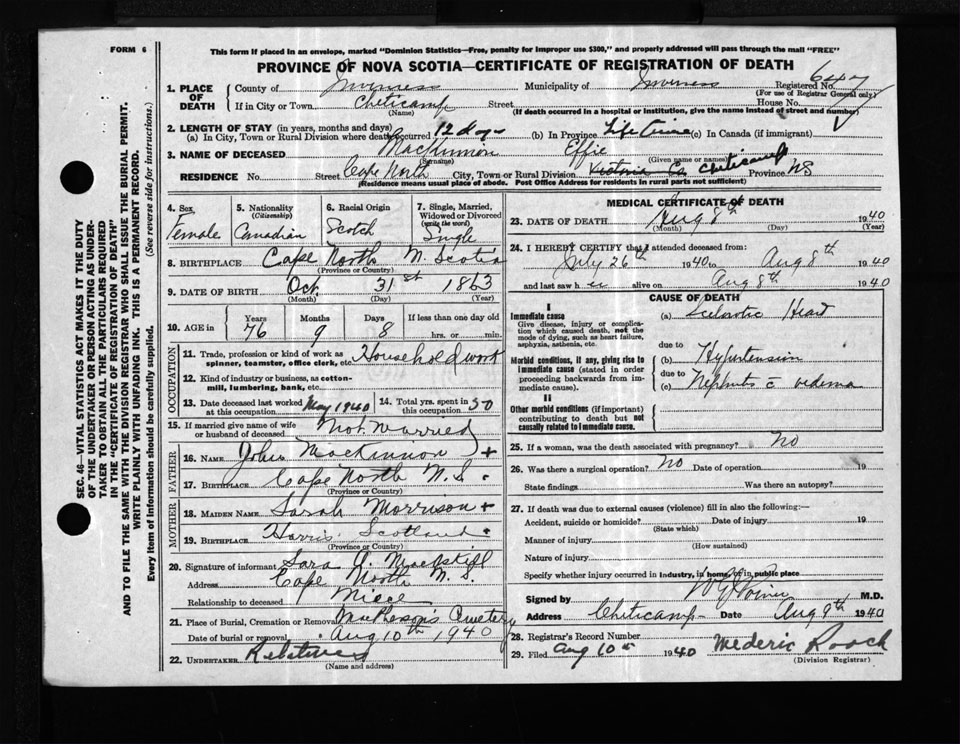 FORM 6
This form if placed in an envelope, marked "Dominion Statistics—Free, penalty for improper use $300," and properly addressed will pass through the mail "FREE"
PROVINCE OF NOVA SCOTIA—CERTIFICATE OF REGISTRATION OF DEATH
1. PLACE OF DEATH
County of Inverness Municipality of Inverness Registered No.
(For use of Registrar General only)
If in City or Town Cheticamp Street House No.
(Name) (If death occurred in a hospital or institution, give the name instead of street and number)
2. LENGTH OF STAY (in years, months and days)
(a) In City, Town or Rural Division where death occurred 12 days (b) In Province Life time (c) In Canada (if immigrant)
3. NAME OF DECEASED MacKinnon Effie
(Surname) (Given name or names)
RESIDENCE No. Street Cape North City, Town or Rural Division Victoria Co Cheticamp Province NS
(Residence means usual place of abode. Post Office Address for residents in rural parts not sufficient)
SEC. 46—VITAL STATISTICS ACT MAKES IT THE DUTY
OF THE UNDERTAKER OR PERSON ACTING AS UNDER-
TAKER TO OBTAIN ALL THE PARTICULARS REQUIRED
IN THE "CERTIFICATE OF REGISTRATION OF DEATH"
AND TO FILE THE SAME WITH THE DIVISION REGISTRAR WHO SHALL ISSUE THE BURIAL PERMIT.
WRITE PLAINLY WITH UNFADING INK. THIS IS A PERMANENT RECORD.
Every item of information should be carefully supplied. (See reverse side for instructions.)
4. Sex Female
5. Nationality (Citizenship) Canadian
6. Racial Origin Scotch
7. Single, Married, Widowed or Divorced (write the word) Single
8. BIRTHPLACE Cape North N. Scotia
(Province or Country)
9. DATE OF BIRTH Oct. 31st 1863
(Month) (Day) (Year)
10. AGE in Years 76 Months 9 Days 8 If less than one day old
hrs. or min.
OCCUPATION
11. Trade, profession or kind of work as spinner, teamster, office clerk, etc. Household work
12. Kind of industry or business, as cotton-mill, lumbering, bank, etc.
13. Date deceased last worked at this occupation May 1940 14. Total yrs. spent in this occupation 50
15. If married give name of wife or husband of deceased Not Married
FATHER
16. NAME John MacKinnon +
17. BIRTHPLACE Cape North N. S.
(Province or Country)
MOTHER
18. MAIDEN NAME Sarah Morrison +
19. BIRTHPLACE Harris Scotland
(Province or Country)
20. Signature of informant Sara
Address Cape North N. S.
Relationship to deceased Niece
21. Place of Burial, Cremation or Removal McPherson's Cemetery
Date of burial or removal Aug 10th 1940
22. UNDERTAKER Relatives
(Name and address)
MEDICAL CERTIFICATE OF DEATH
23. DATE OF DEATH Aug 8th 1940
(Month) (Day) (Year)
24. I HEREBY CERTIFY that I attended deceased from:
July 26th 1940 to Aug 8th 1940
and last saw h er alive on Aug 8th 1940
CAUSE OF DEATH
I
Immediate cause
Give disease, injury or complication which caused death, not the mode of dying, such as heart failure, asphyxia, asthenia, etc.
(a) Sclerotic Heart
due to
Morbid conditions, if any, giving rise to immediate cause (stated in order proceeding backwards from immediate cause).
(b) Hypertension
due to
(c) Nephritis c̄ oedema
II
Other morbid conditions (if important) contributing to death but not causally related to immediate cause.
25. If a woman, was the death associated with pregnancy? No
26. Was there a surgical operation? No Date of operation 19
State findings Was there an autopsy?
27. If death was due to external causes (violence) fill in also the following:—
Accident, suicide or homicide? Date of injury 19
(State which)
Manner of injury
(How sustained)
Nature of injury
Specify whether injury occurred in industry, in home, or in public place
Signed by M.D.
Address Cheticamp Date Aug 9th 1940
28. Registrar's Record Number
29. Filed Aug 10th 1940 Mederic Roach
(Division Registrar)